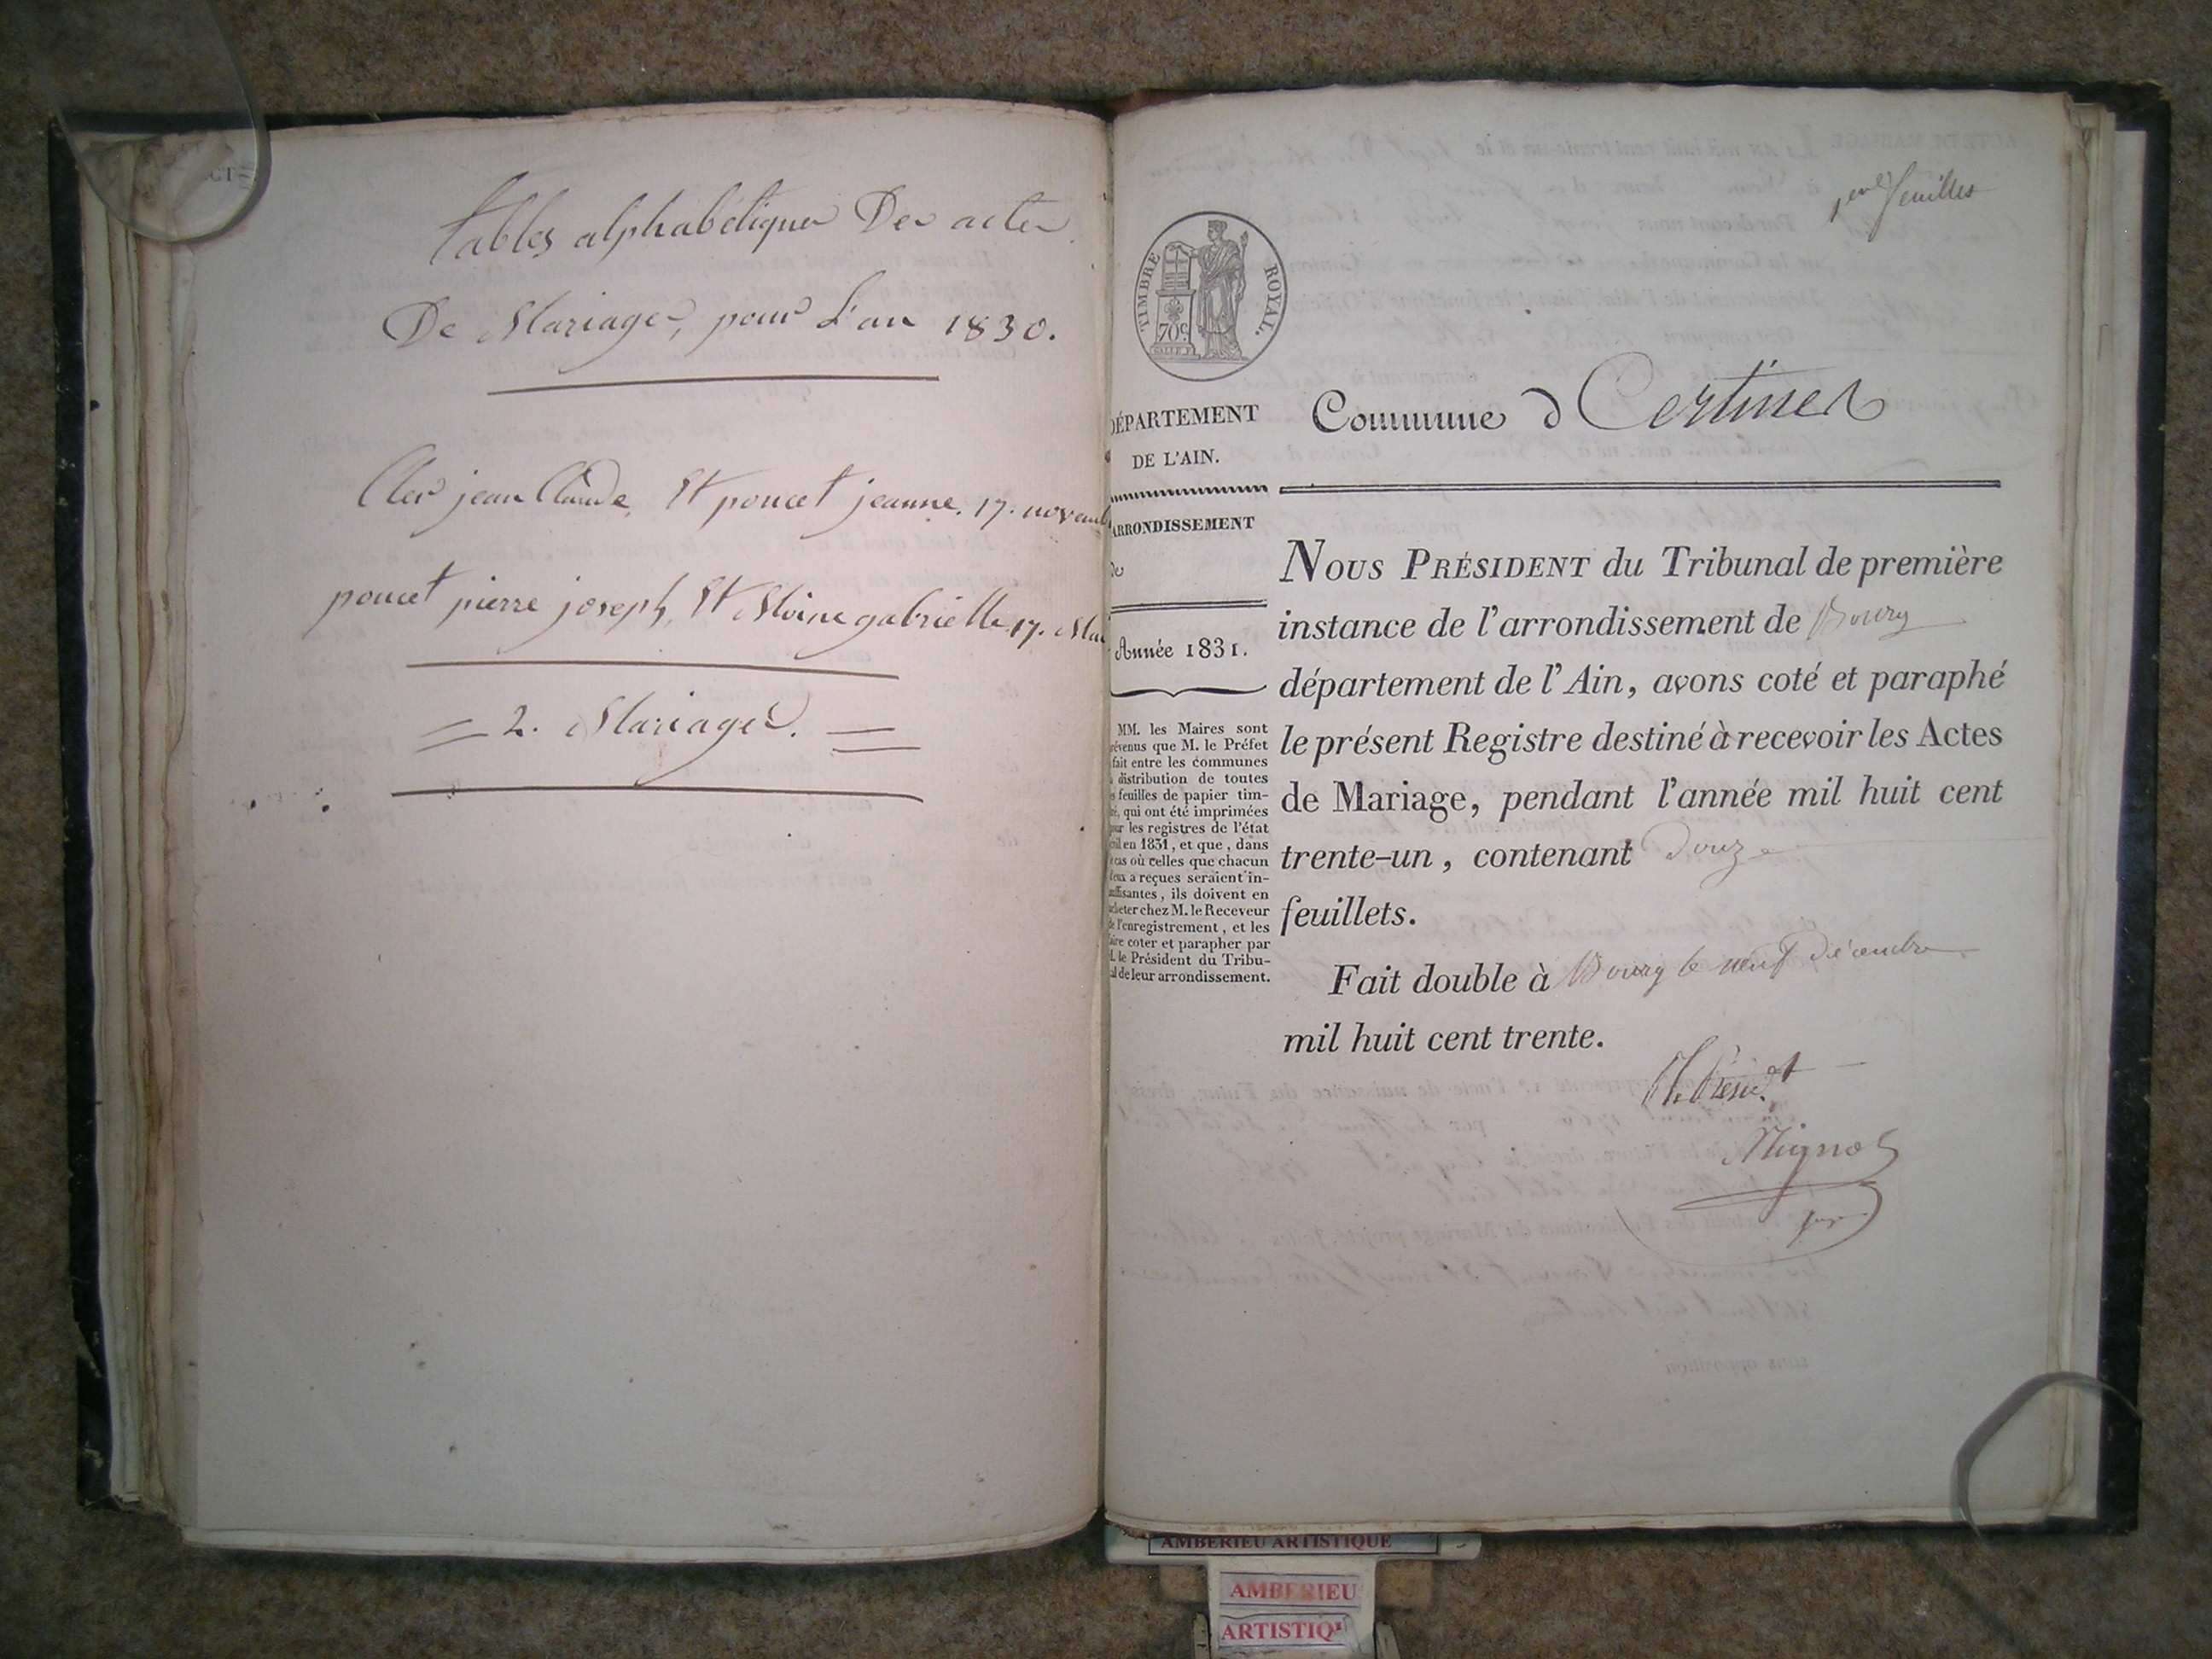 tables alphabétiques Des actes
De Mariages, pour L'an 1830.
Cler jean Claude, Et poncet jeanne. 17. novemb
poncet pierre joseph, Et Moine gabrielle. 17. Mai
= 2. Mariages. =
1ere feuillet
TIMBRE ROYAL.
70c.
DÉPARTEMENT
DE L'AIN.
ARRONDISSEMENT
de
Année 1831.
MM. les Maires sont
prévenus que M. le Préfet
fait entre les communes
distribution de toutes
feuilles de papier tim-
qui ont été imprimées
pour les registres de l'état
civil en 1831, et que, dans
cas où celles que chacun
d'eux a reçues seraient in-
suffisantes, ils doivent en
acheter chez M. le Receveur
de l'enregistrement, et les
faire coter et parapher par
M. le Président du Tribu-
nal de leur arrondissement.
Commune d Certines
NOUS PRÉSIDENT du Tribunal de première
instance de l'arrondissement de Bourg
département de l'Ain, avons coté et paraphé
le présent Registre destiné à recevoir les Actes
de Mariage, pendant l'année mil huit cent
trente-un, contenant Douze
feuillets.
Fait double à Bourg le neuf Décembre
mil huit cent trente.
Le Présid.nt
AMBERIEU ARTISTIQUE
AMBERIEU
ARTISTIQ